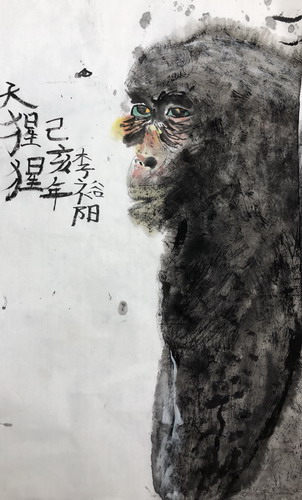 天猩猩
己亥年
李裕阳